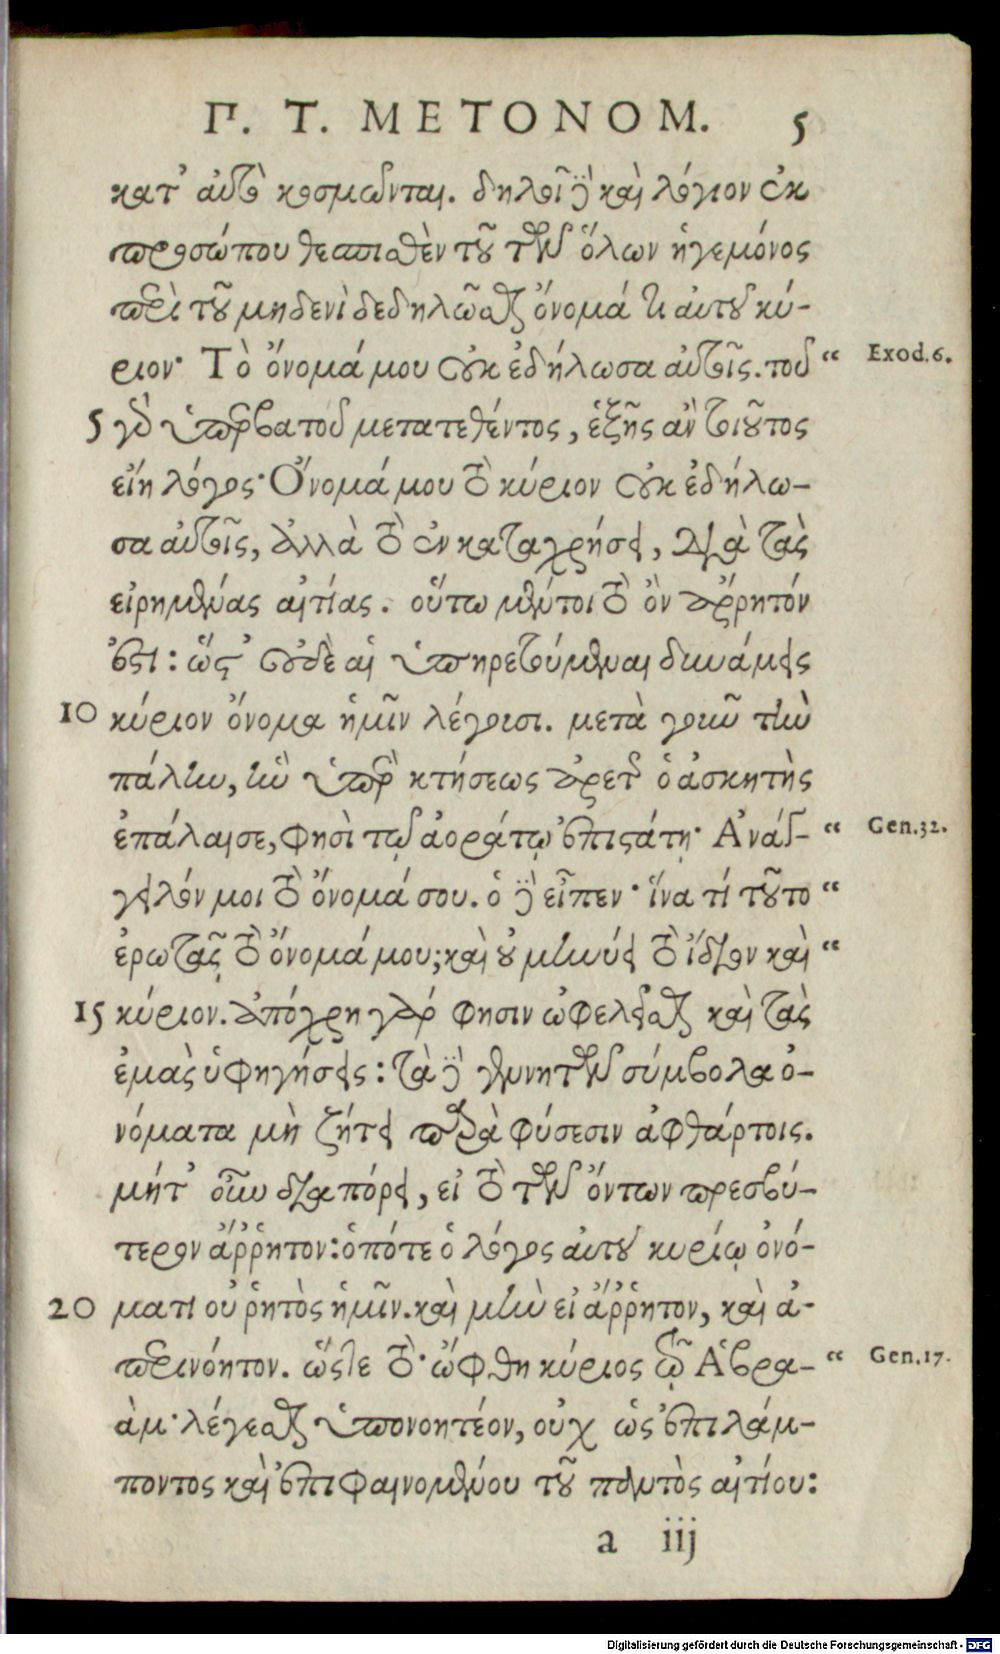 Π. Τ. ΜΕΤΟΝΟΜ. 5
κατ' αὐτὸ κοσμῶνται. δηλοῖ δὲ καὶ λόγιον ἐκ
προσώπου θεσπισθὲν τοῦ τῶν ὅλων ἡγεμόνος
περὶ τοῦ μηδενὶ δεδηλῶσθαι ὄνομά τι αὐτοῦ κύ-
ριον· Τὸ ὄνομά μου οὐκ ἐδήλωσα αὐτοῖς. τοῦ “ Exod.6.
5 γὰρ ὑπερβατοῦ μετατεθέντος, ἑξῆς ἂν τοιοῦτος
εἴη λόγος· Ὄνομά μου τὸ κύριον οὐκ ἐδήλω-
σα αὐτοῖς, ἀλλὰ τὸ ἐν καταχρήσει, διὰ τὰς
εἰρημένας αἰτίας. οὕτω μέντοι τὸ ὂν ἄρρητόν
ἐστι: ὥστ' οὐδὲ αἱ ὑπηρετούμεναι δυνάμεις
10 κύριον ὄνομα ἡμῖν λέγουσι. μετὰ γοῦν τὴν
πάλην, ἣν ὑπὲρ κτήσεως ἀρετῆς ὁ ἀσκητὴς
ἐπάλαισε, φησὶ τῷ ἀοράτῳ ἐπιστάτῃ· Ἀνάγ- “ Gen.32.
γειλόν μοι τὸ ὄνομά σου. ὁ δὲ εἶπεν· ἵνα τί τοῦτο “
ἐρωτᾷς τὸ ὄνομά μου; καὶ οὐ μηνύει τὸ ἴδιον καὶ “
15 κύριον. ἀπόχρη γάρ φησιν ὠφελεῖσθαι καὶ τὰς
ἐμὰς ὑφηγήσεις: τὰ δὲ γεννητῶν σύμβολα ὀ-
νόματα μὴ ζήτει παρὰ φύσεσιν ἀφθάρτοις.
μήτ' οὖν διαπόρει, εἰ τὸ τῶν ὄντων πρεσβύ-
τερον ἄῤῥητον: ὁπότε ὁ λόγος αὐτοῦ κυρίῳ ὀνό-
20 ματι οὐ ῥητὸς ἡμῖν. καὶ μὴν εἰ ἄῤῥητον, καὶ ἀ-
περινόητον. ὥστε τὸ· ὤφθη κύριος τῷ Ἀβρα- “ Gen.17.
ὰμ· λέγεσθαι ὑπονοητέον, οὐχ ὡς ἐπιλάμ-
ποντος καὶ ἐπιφαινομένου τοῦ παντὸς αἰτίου:
a iij
Digitalisierung gefördert durch die Deutsche Forschungsgemeinschaft - DFG